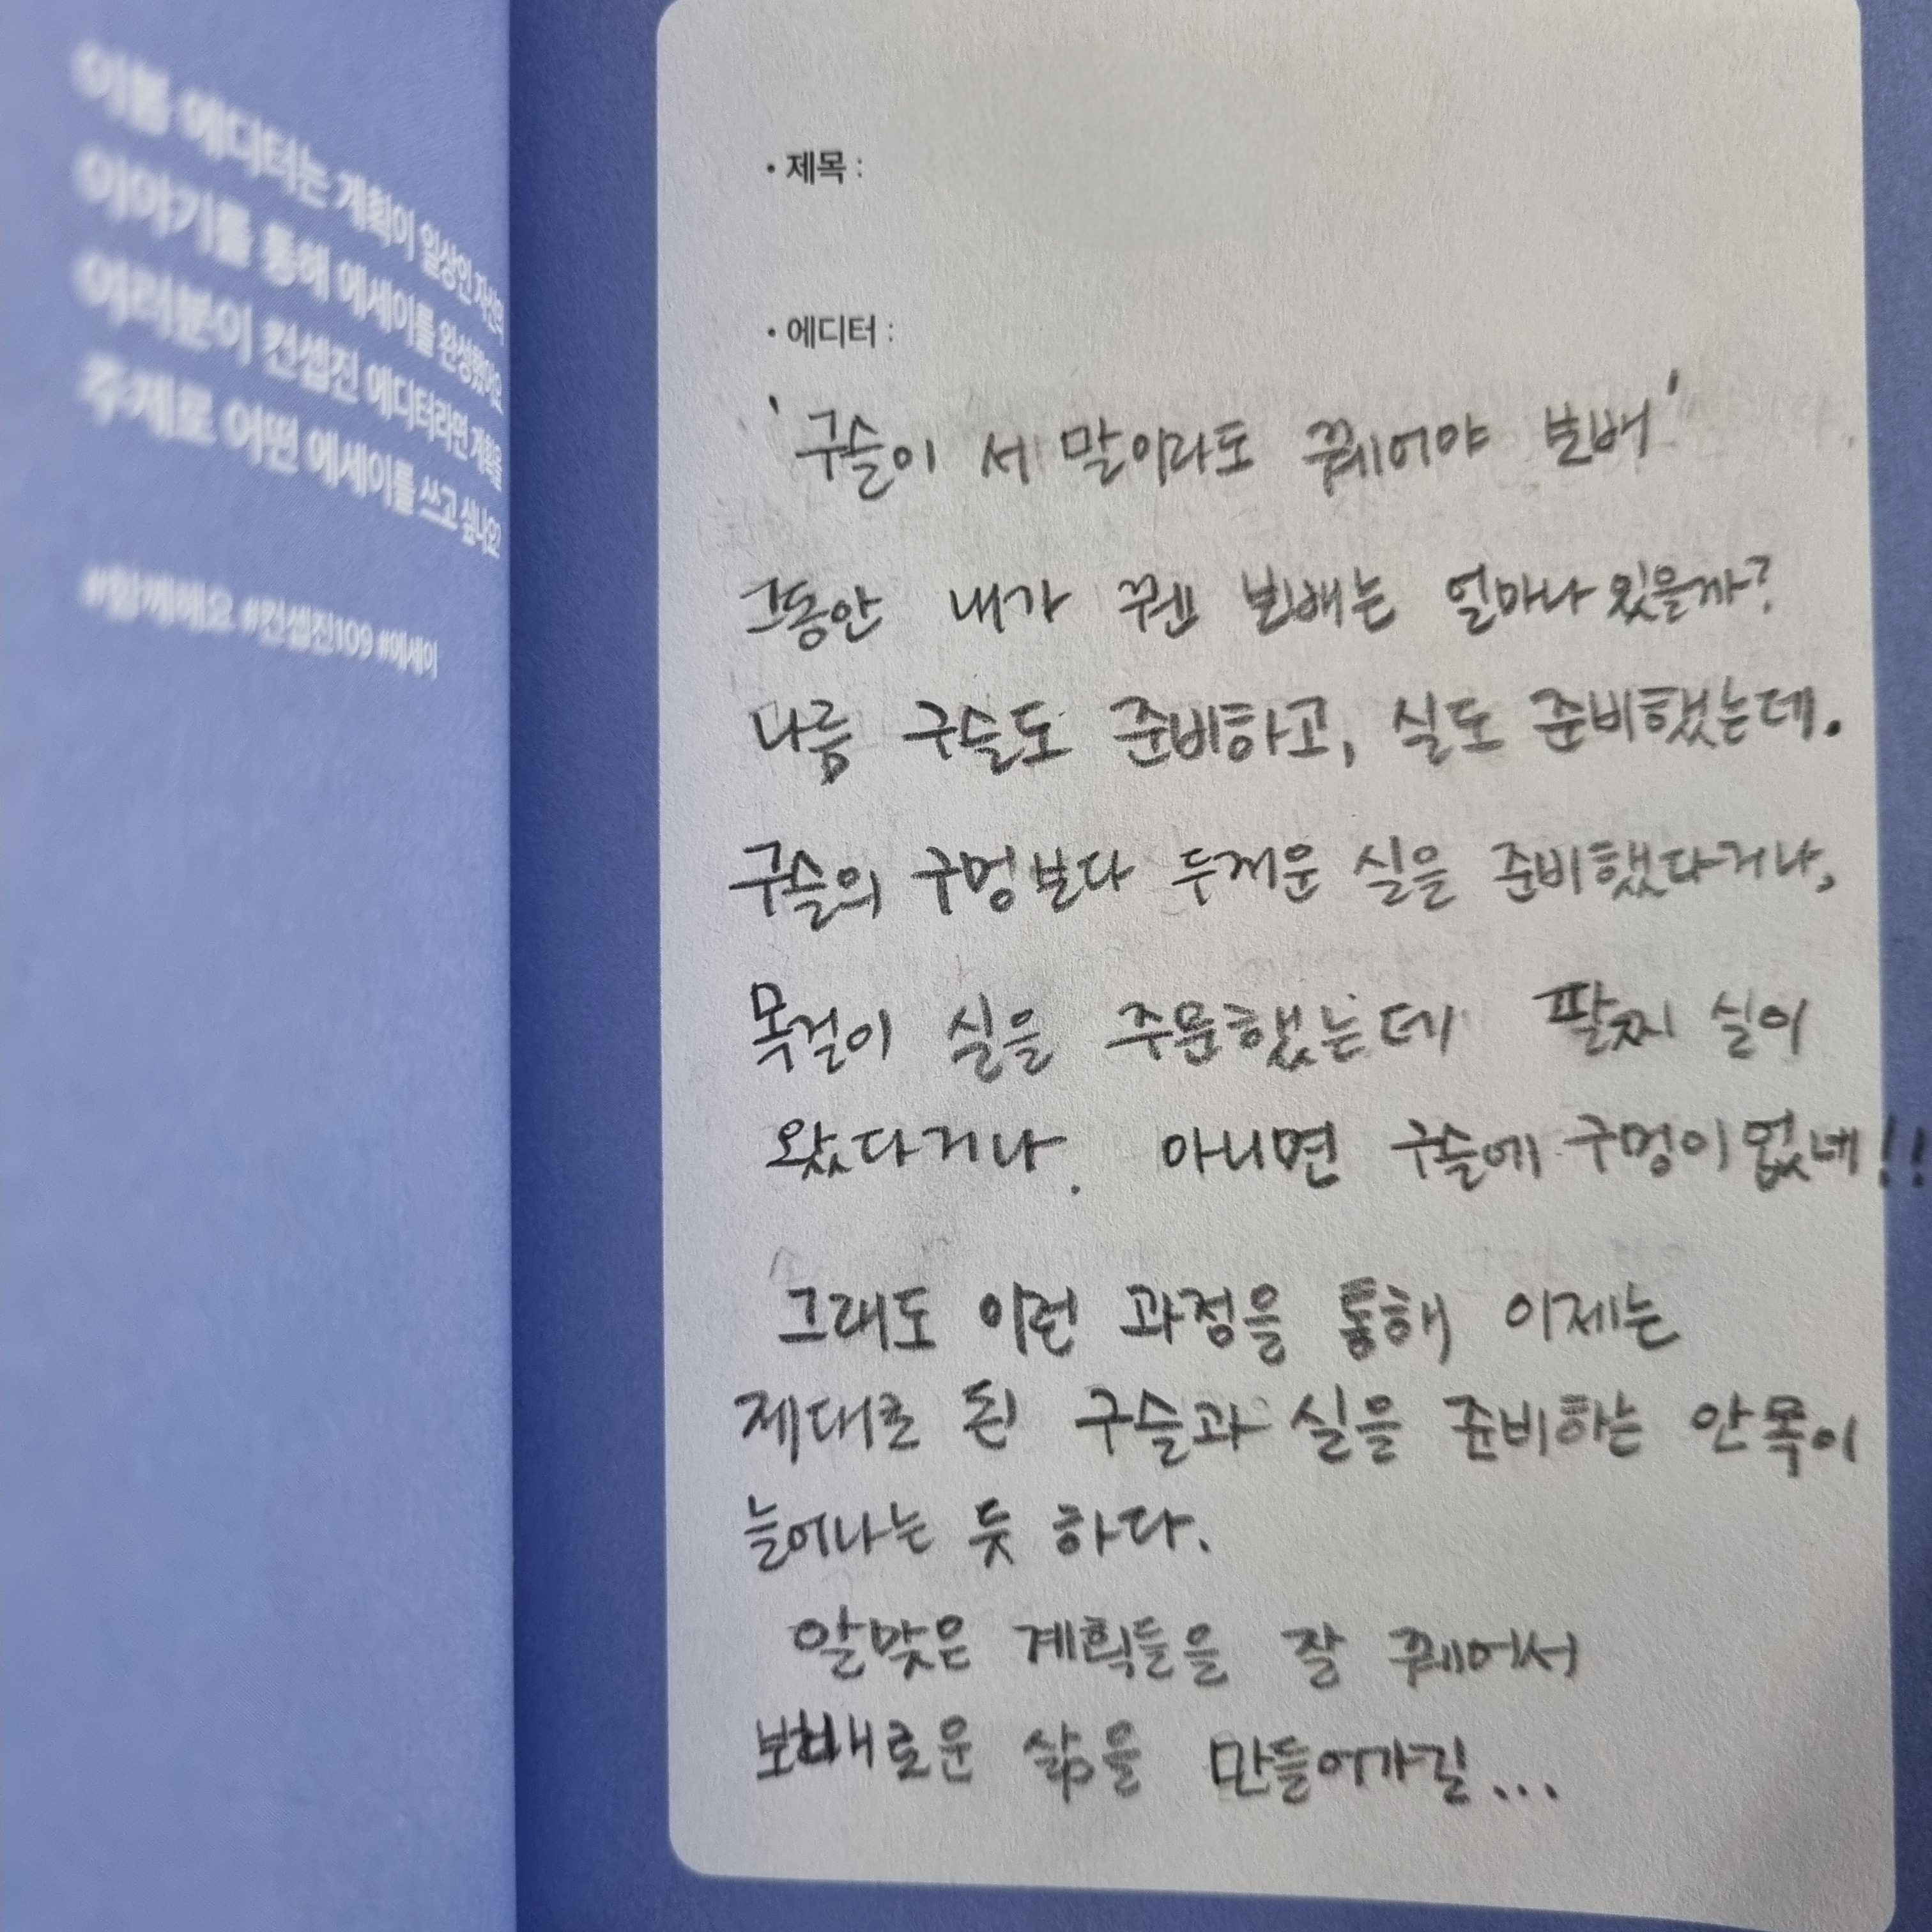 이봄 에디터는 계획이 일상인 자신의
이야기를 통해 에세이를 완성했어요
여러분이 컨셉진 에디터라면 계획을
주제로 어떤 에세이를 쓰고 싶나요?
#함께해요 #컨셉진109 #에세이
• 제목 :
• 에디터 :
'구슬이 서 말이라도 꿰어야 보배'
그동안 내가 꿴 보배는 얼마나 있을까?
나름 구슬도 준비하고, 실도 준비했는데.
구슬의 구멍보다 두꺼운 실을 준비했다거나,
목걸이 실을 주문했는데 팔찌 실이
왔다거나. 아니면 구슬에 구멍이 없네!!
그래도 이런 과정을 통해 이제는
제대로 된 구슬과 실을 준비하는 안목이
늘어나는 듯 하다.
알맞은 계획들을 잘 꿰어서
보배로운 삶을 만들어가길...